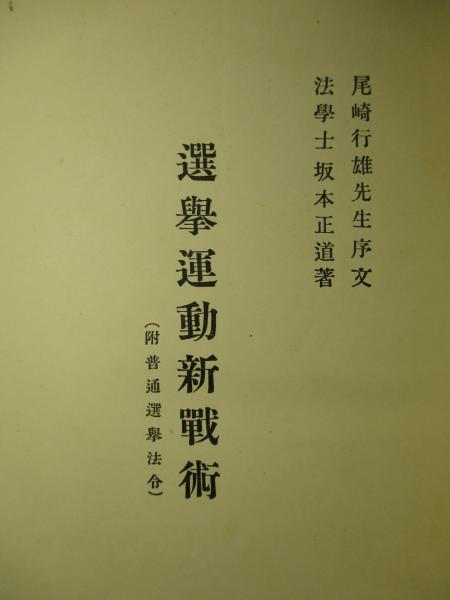 尾崎行雄先生序文
法學士坂本正道著
選擧運動新戰術
（附普通選擧法令）